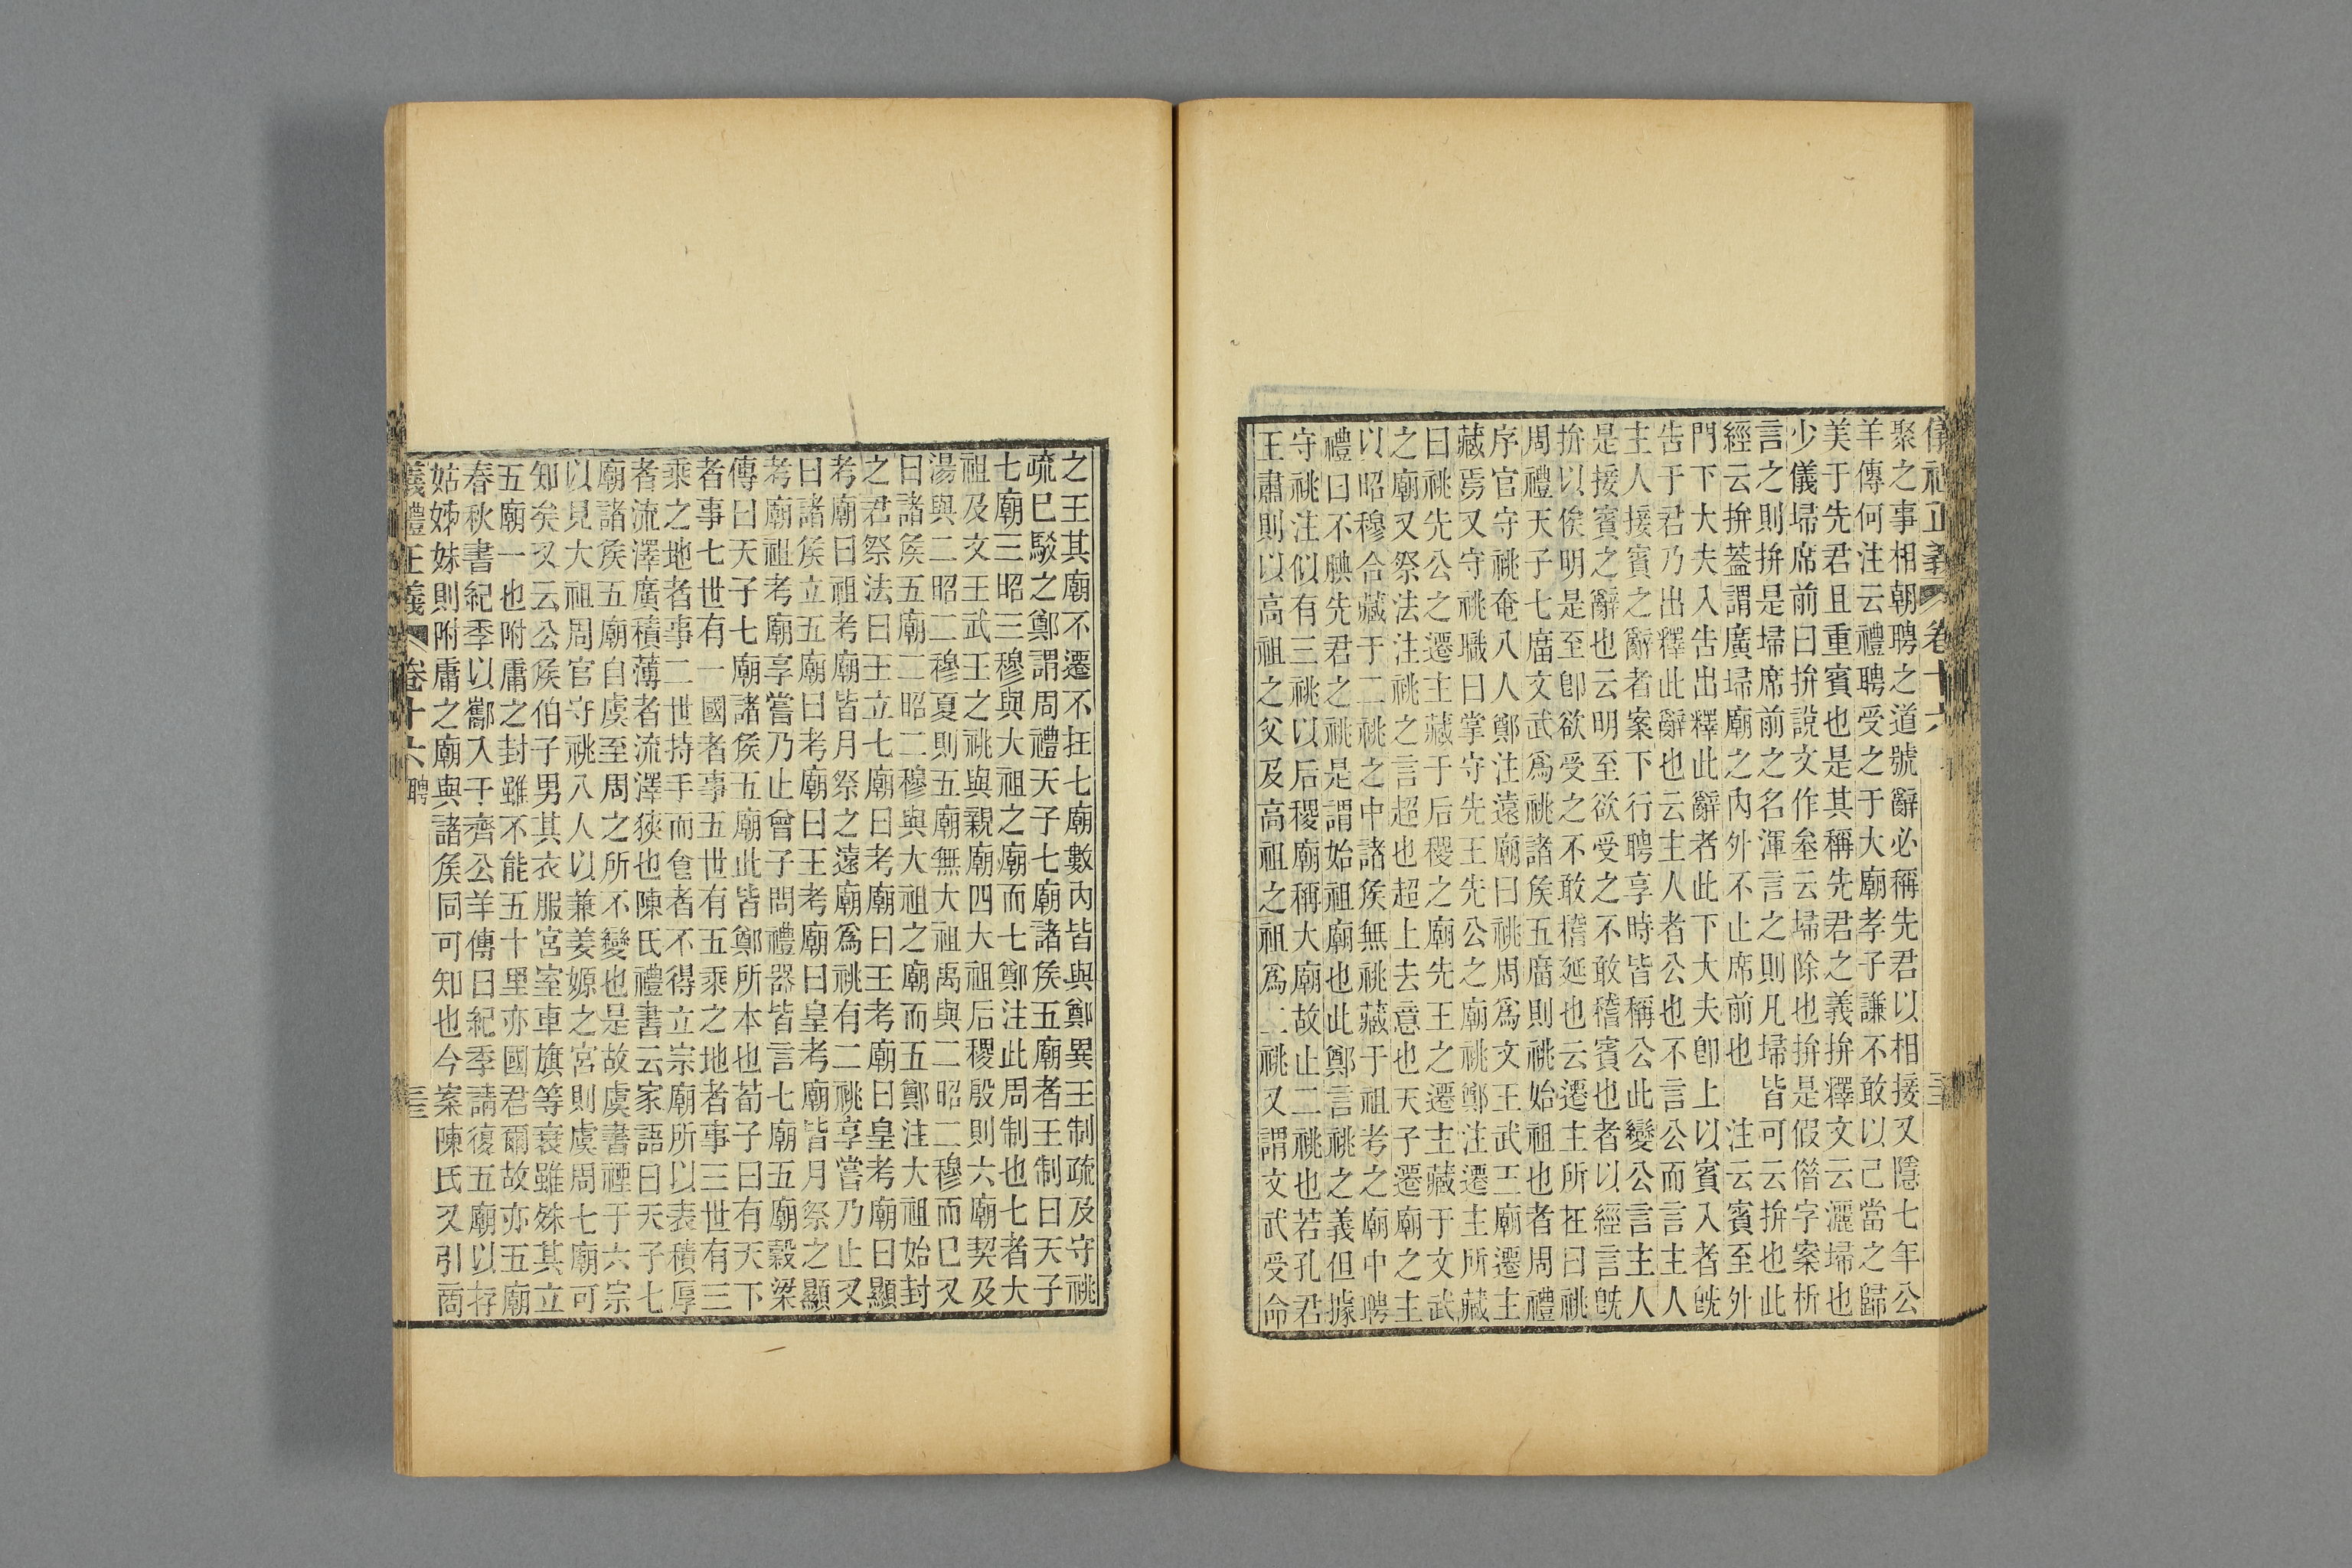 儀禮正義 卷十六
聚之事相朝聘之道號辭必稱先君以相接又隱七年公
羊傳何注云禮聘受之于大廟孝子謙不敢以己當之歸
美于先君且重賓也是其稱先君之義拚釋文云灑埽也
少儀埽席前曰拚說文作坌云埽除也拚是假借字案析
言之則拚是埽席前之名渾言之則凡埽皆可云拚也此
經云拚蓋謂廣埽廟之內外不止席前也 注云賓至外
門下大夫入告出釋此辭者此下大夫卽上以賓入者旣
告于君乃出釋此辭也云主人者公也不言公而言主人
主人接賓之辭者案下行聘享時皆稱公此變公言主人
是接賓之辭也云明至欲受之不敢稽賓也者以經言旣
拚以俟明是至卽欲受之不敢稽延也云遷主所在曰祧
周禮天子七廟文武爲祧諸矦五廟則祧始祖也者周禮
序官守祧奄八人鄭注遠廟曰祧周爲文王武王廟遷主
藏焉又守祧職曰掌守先王先公之廟祧鄭注遷主所藏
曰祧先公之遷主藏于后稷之廟先王之遷主藏于文武
之廟又祭法注祧之言超也超上去意也天子遷廟之主
以昭穆合藏于二祧之中諸矦無祧藏于祖考之廟中聘
禮曰不腆先君之祧是謂始祖廟也此鄭言祧之義但據
守祧注似有三祧以后稷廟稱大廟故止二祧也若孔君
王肅則以高祖之父及高祖之祖爲二祧又謂文武受命
之王其廟不遷不在七廟數內皆與鄭異王制疏及守祧
疏已駁之鄭謂周禮天子七廟諸矦五廟者王制曰天子
七廟三昭三穆與大祖之廟而七鄭注此周制也七者大
祖及文王武王之祧與親廟四大祖后稷殷則六廟契及
湯與二昭二穆夏則五廟無大祖禹與二昭二穆而已又
曰諸矦五廟二昭二穆與大祖之廟而五鄭注大祖始封
之君祭法曰王立七廟曰考廟曰王考廟曰皇考廟曰顯
考廟曰祖考廟皆月祭之遠廟爲祧有二祧享嘗乃止又
曰諸矦立五廟曰考廟曰王考廟曰皇考廟皆月祭之顯
考廟祖考廟享嘗乃止曾子問禮器皆言七廟五廟穀梁
傳曰天子七廟諸矦五廟此皆鄭所本也荀子曰有天下
者事七世有一國者事五世有五乘之地者事三世有三
乘之地者事二世持手而食者不得立宗廟所以表積厚
者流澤廣積薄者流澤狹也陳氏禮書云家語曰天子七
廟諸矦五廟自虞至周之所不變也是故虞書禋于六宗
以見大祖周官守祧八人以兼姜嫄之宮則虞周七廟可
知矣又云公矦伯子男其衣服宮室車旗等衰雖殊其立
五廟一也附庸之封雖不能五十里亦國君爾故亦五廟
春秋書紀季以酅入于齊公羊傳曰紀季請復五廟以存
姑姊妹則附庸之廟與諸矦同可知也今案陳氏又引商
儀禮正義 卷十六 聘